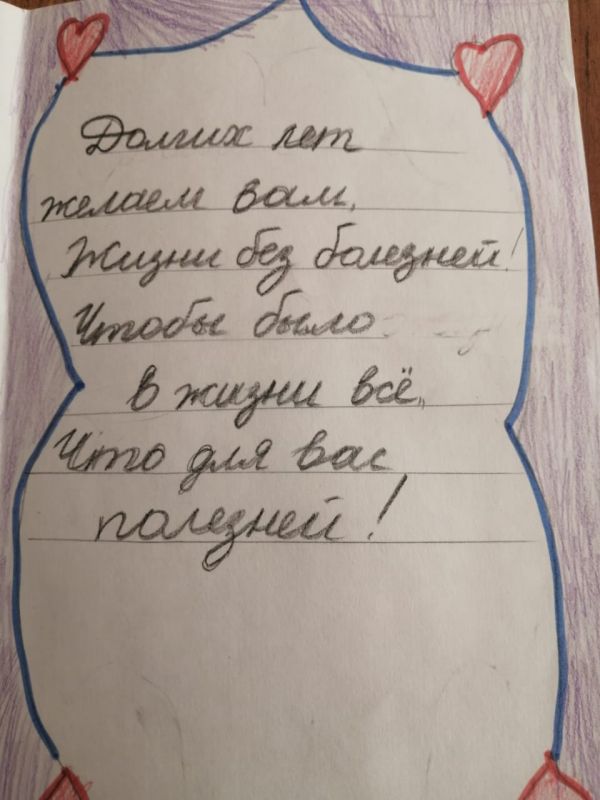 Долгих лет
желаем вам,
Жизни без болезней!
Чтобы было
в жизни всё,
Что для вас
полезней!